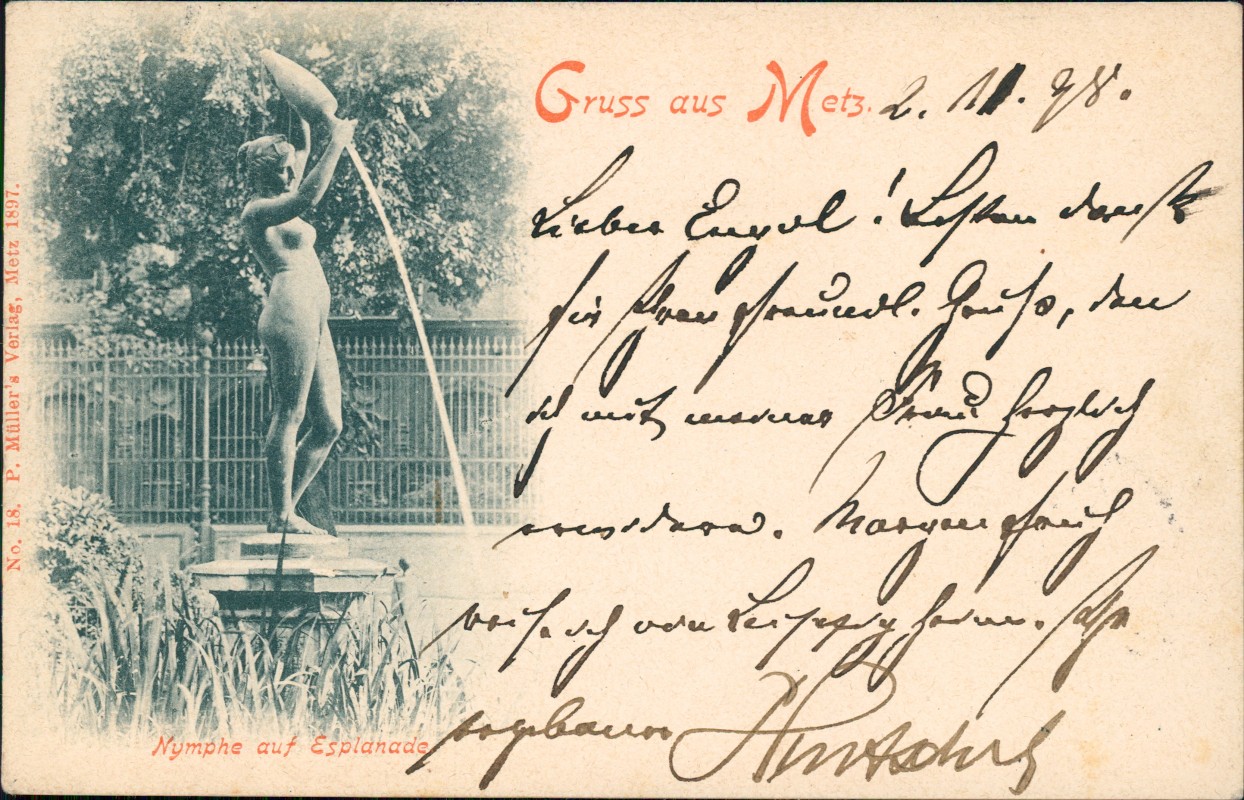 Gruss aus Metz.
2. 11. 98.
Lieber Engel! Besten Dank
für Ihren freundl. Gruß, den
ich mit meiner Frau herzlich
erwidere. Morgen früh
reise ich von Leipzig heim. Ihr
ergebener
Nymphe auf Esplanade
No. 18. P. Müller's Verlag, Metz 1897.